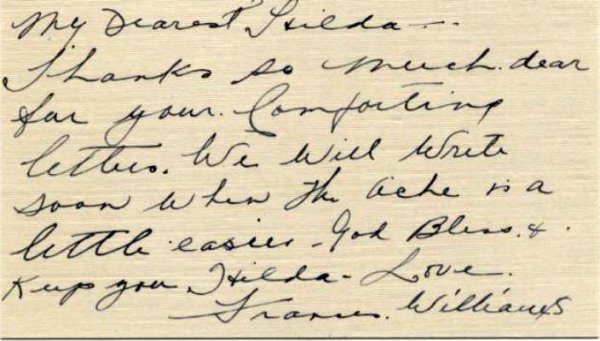 My Dearest Hilda—
Thanks so much dear
for your Comforting
letters. We Will Write
soon when the ache is a
little easier - God Bless &
Keep you Hilda - Love.
Frances. Williams